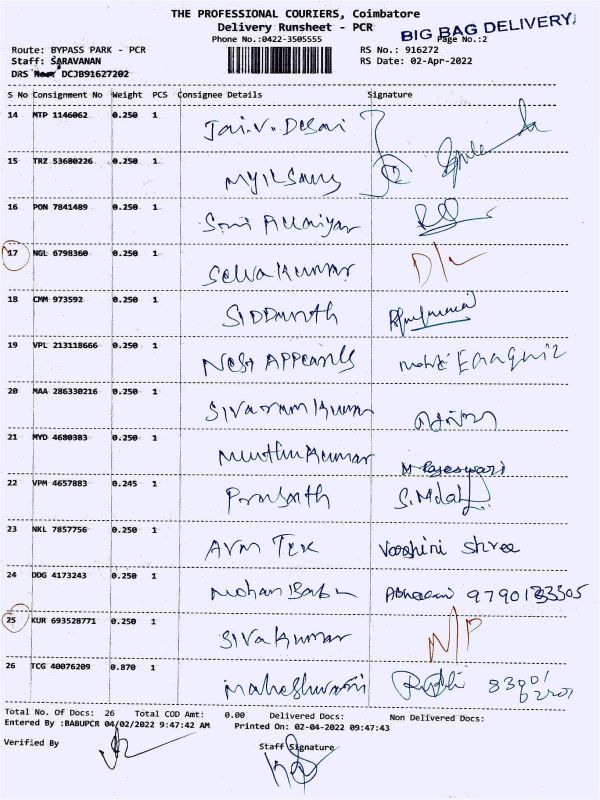 THE PROFESSIONAL COURIERS, Coimbatore
Delivery Runsheet - PCR
BIG BAG DELIVERY
Phone No.:0422-3505555 Page No.:2
Route: BYPASS PARK - PCR RS No.: 916272
Staff: SARAVANAN RS Date: 02-Apr-2022
DRS DCJB91627202
S No Consignment No Weight PCS Consignee Details Signature
14 MTP 1146062 0.250 1 Jai.V.Desai
15 TRZ 53680226 0.250 1
16 PON 7841489 0.250 1
17 NGL 6798360 0.250 1 Selvakumar D/L
18 CNM 973592 0.250 1 SIDDharth
19 VPL 213118666 0.250 1
20 MAA 286330216 0.250 1 Sivaramkumar
21 MYD 4680383 0.250 1 Muthukumar M Rajeswari
22 VPM 4657883 0.245 1 Prasanth
23 NKL 7857756 0.250 1 AVM Tex Varshini shree
24 DDG 4173243 0.250 1 Mohan Babu
25 KUR 693528771 0.250 1 Sivakumar N/P
26 TCG 40076209 0.870 1 Maheshwari
Total No. Of Docs: 26 Total COD Amt: 0.00 Delivered Docs: Non Delivered Docs:
Entered By :BABUPCR 04/02/2022 9:47:42 AM Printed On: 02-04-2022 09:47:43
Verified By Staff Signature